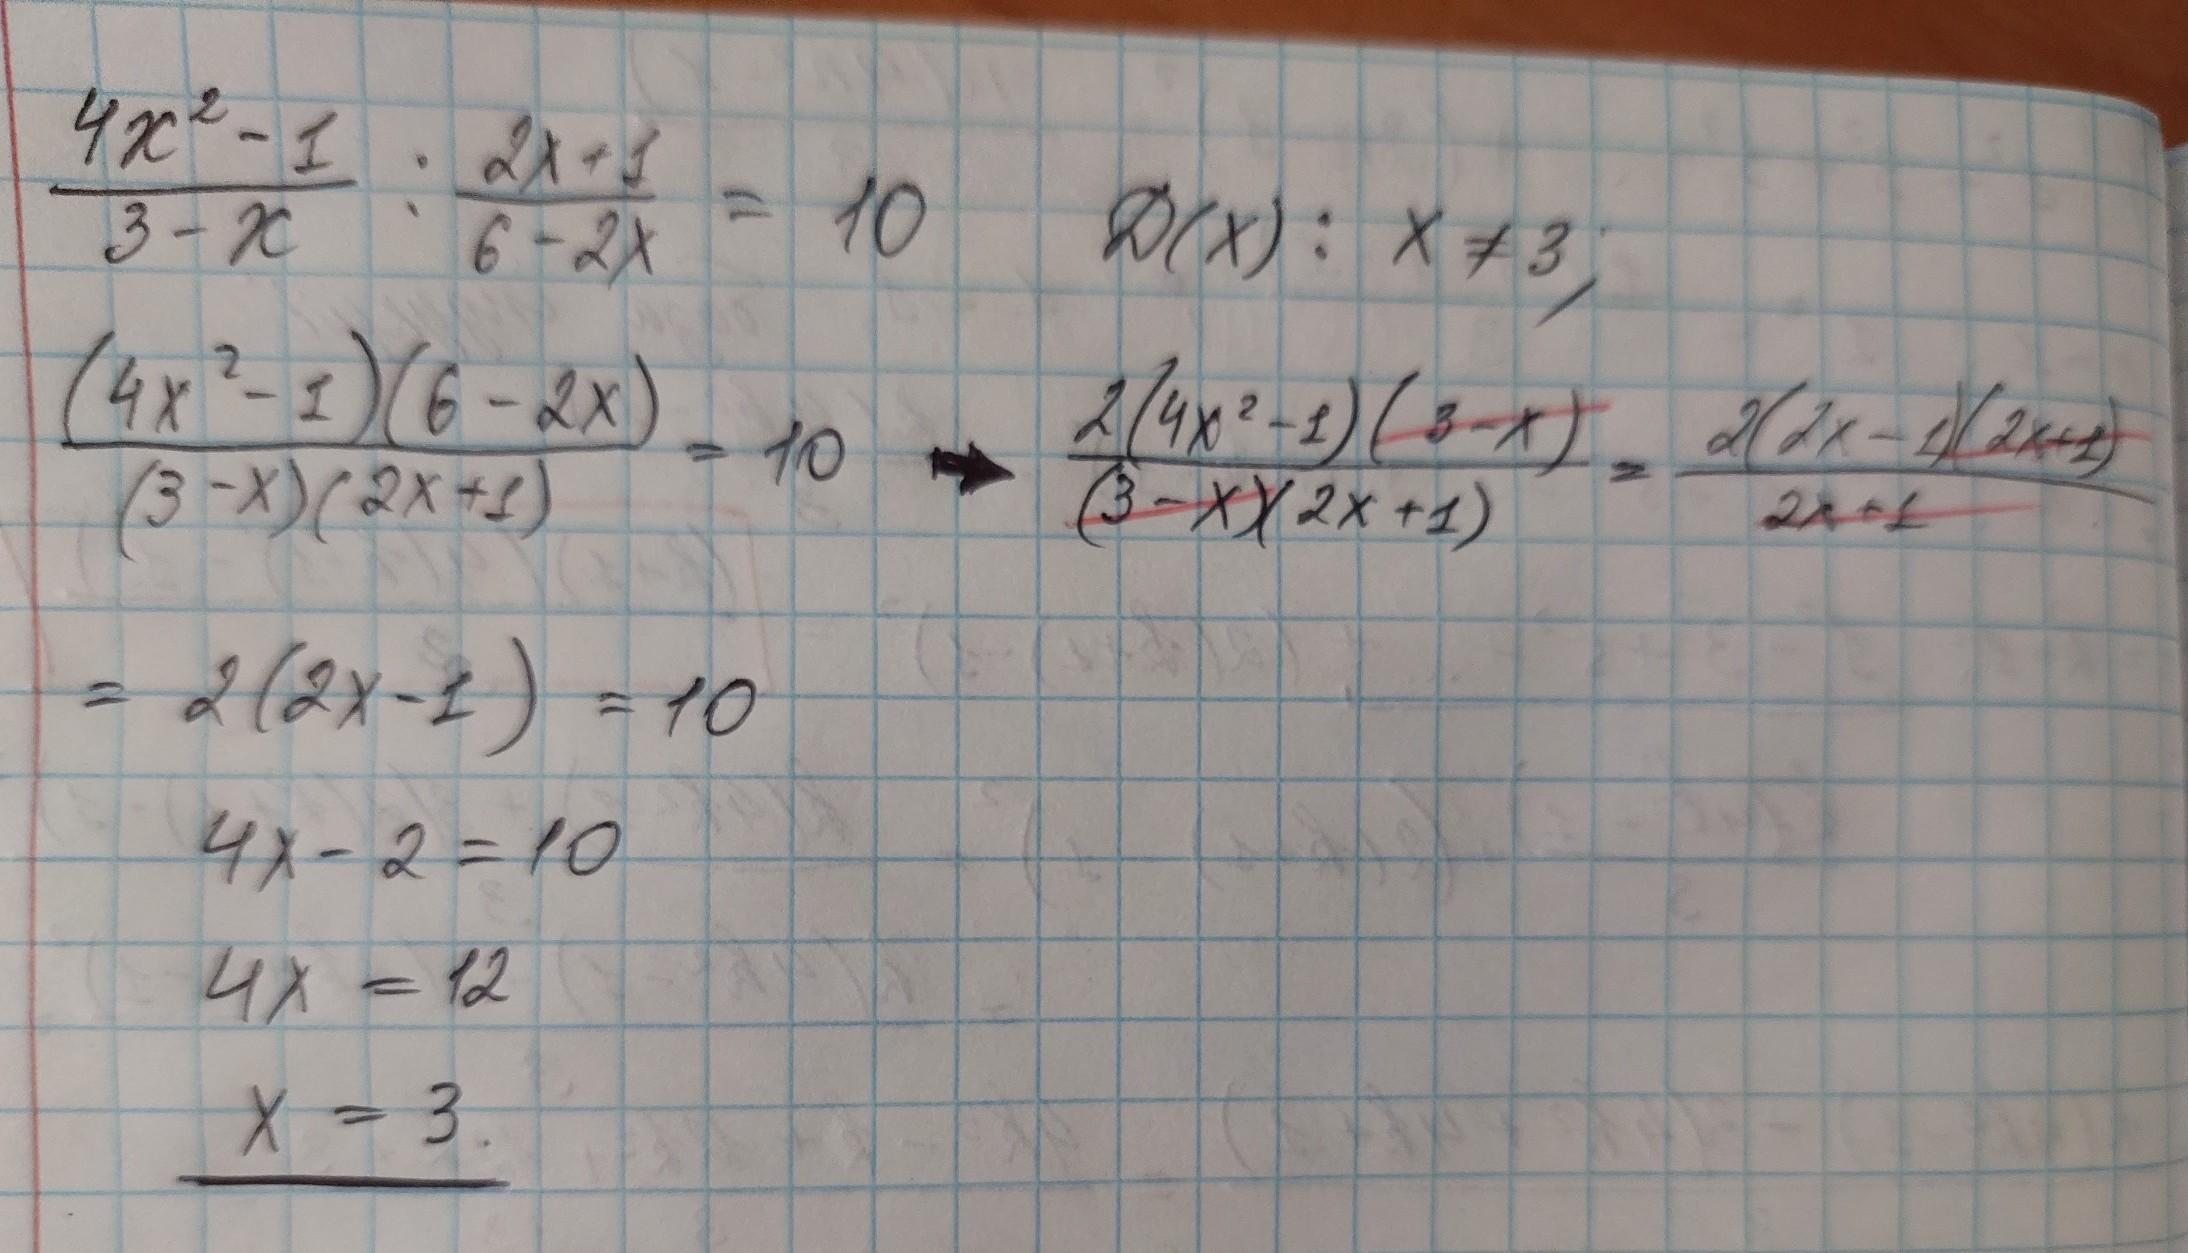 (4x²-1)/(3-x) : (2x+1)/(6-2x) = 10 D(x): x ≠ 3;
((4x²-1)(6-2x))/((3-x)(2x+1)) = 10 → (2(4x²-1)(3-x))/((3-x)(2x+1)) = (2(2x-1)(2x+1))/(2x+1)
= 2(2x-1) = 10
4x-2=10
4x = 12
x = 3.